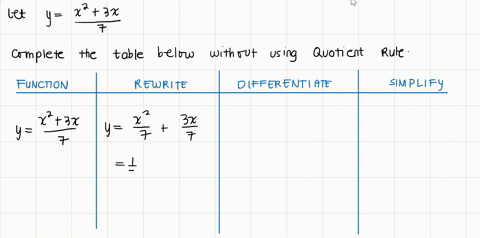 Let y = \frac{x^2+3x}{7}
Complete the table below without using Quotient Rule.
FUNCTION REWRITE DIFFERENTIATE SIMPLIFY
y = \frac{x^2+3x}{7} y = \frac{x^2}{7} + \frac{3x}{7}
= 1/